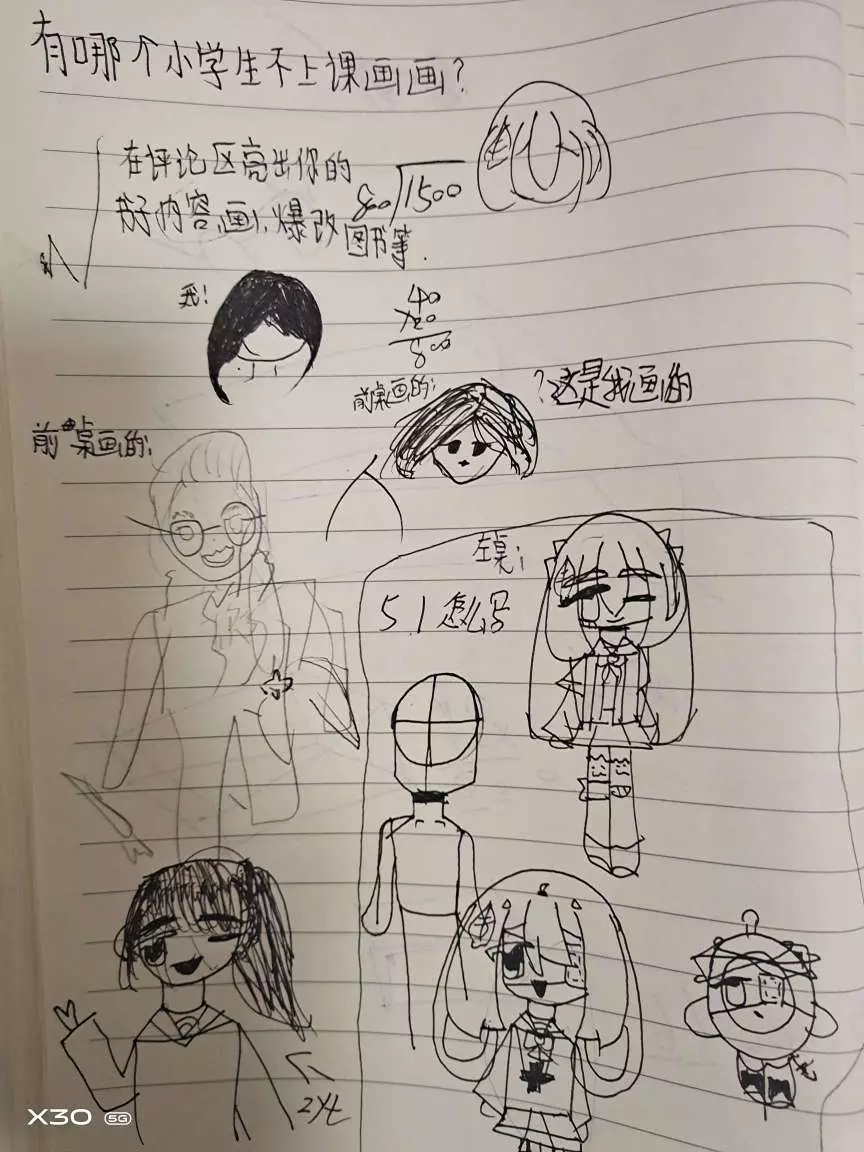 有哪个小学生不上课画画？
在评论区亮出你的
好内容,画,爆改
图书等.
800 1500
我:
40
×20
800
前桌画的:
?这是我画的
前桌画的:
左桌:
51怎么写
X30 5G